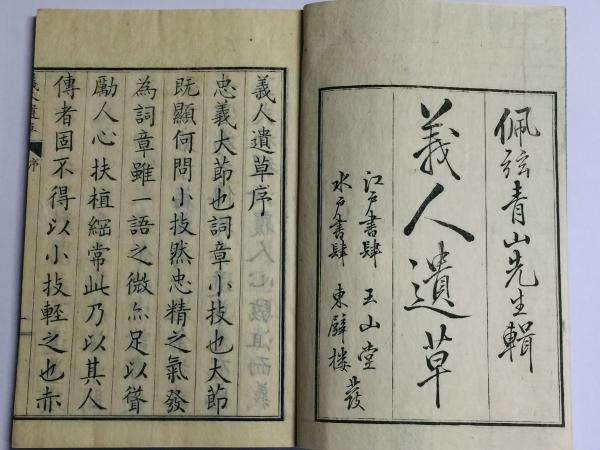 佩弦青山先生輯
義人遺草
江戸書肆 玉山堂
水戸書肆 東壁楼 發
義人遺草序
忠義大節也詞章小技也大節
既顯何問小技然忠精之氣發
為詞章雖一語之微尓足以聳
勵人心扶植綱常此乃以其人
傳者固不得以小技輕之也赤
義人遺草 序
一